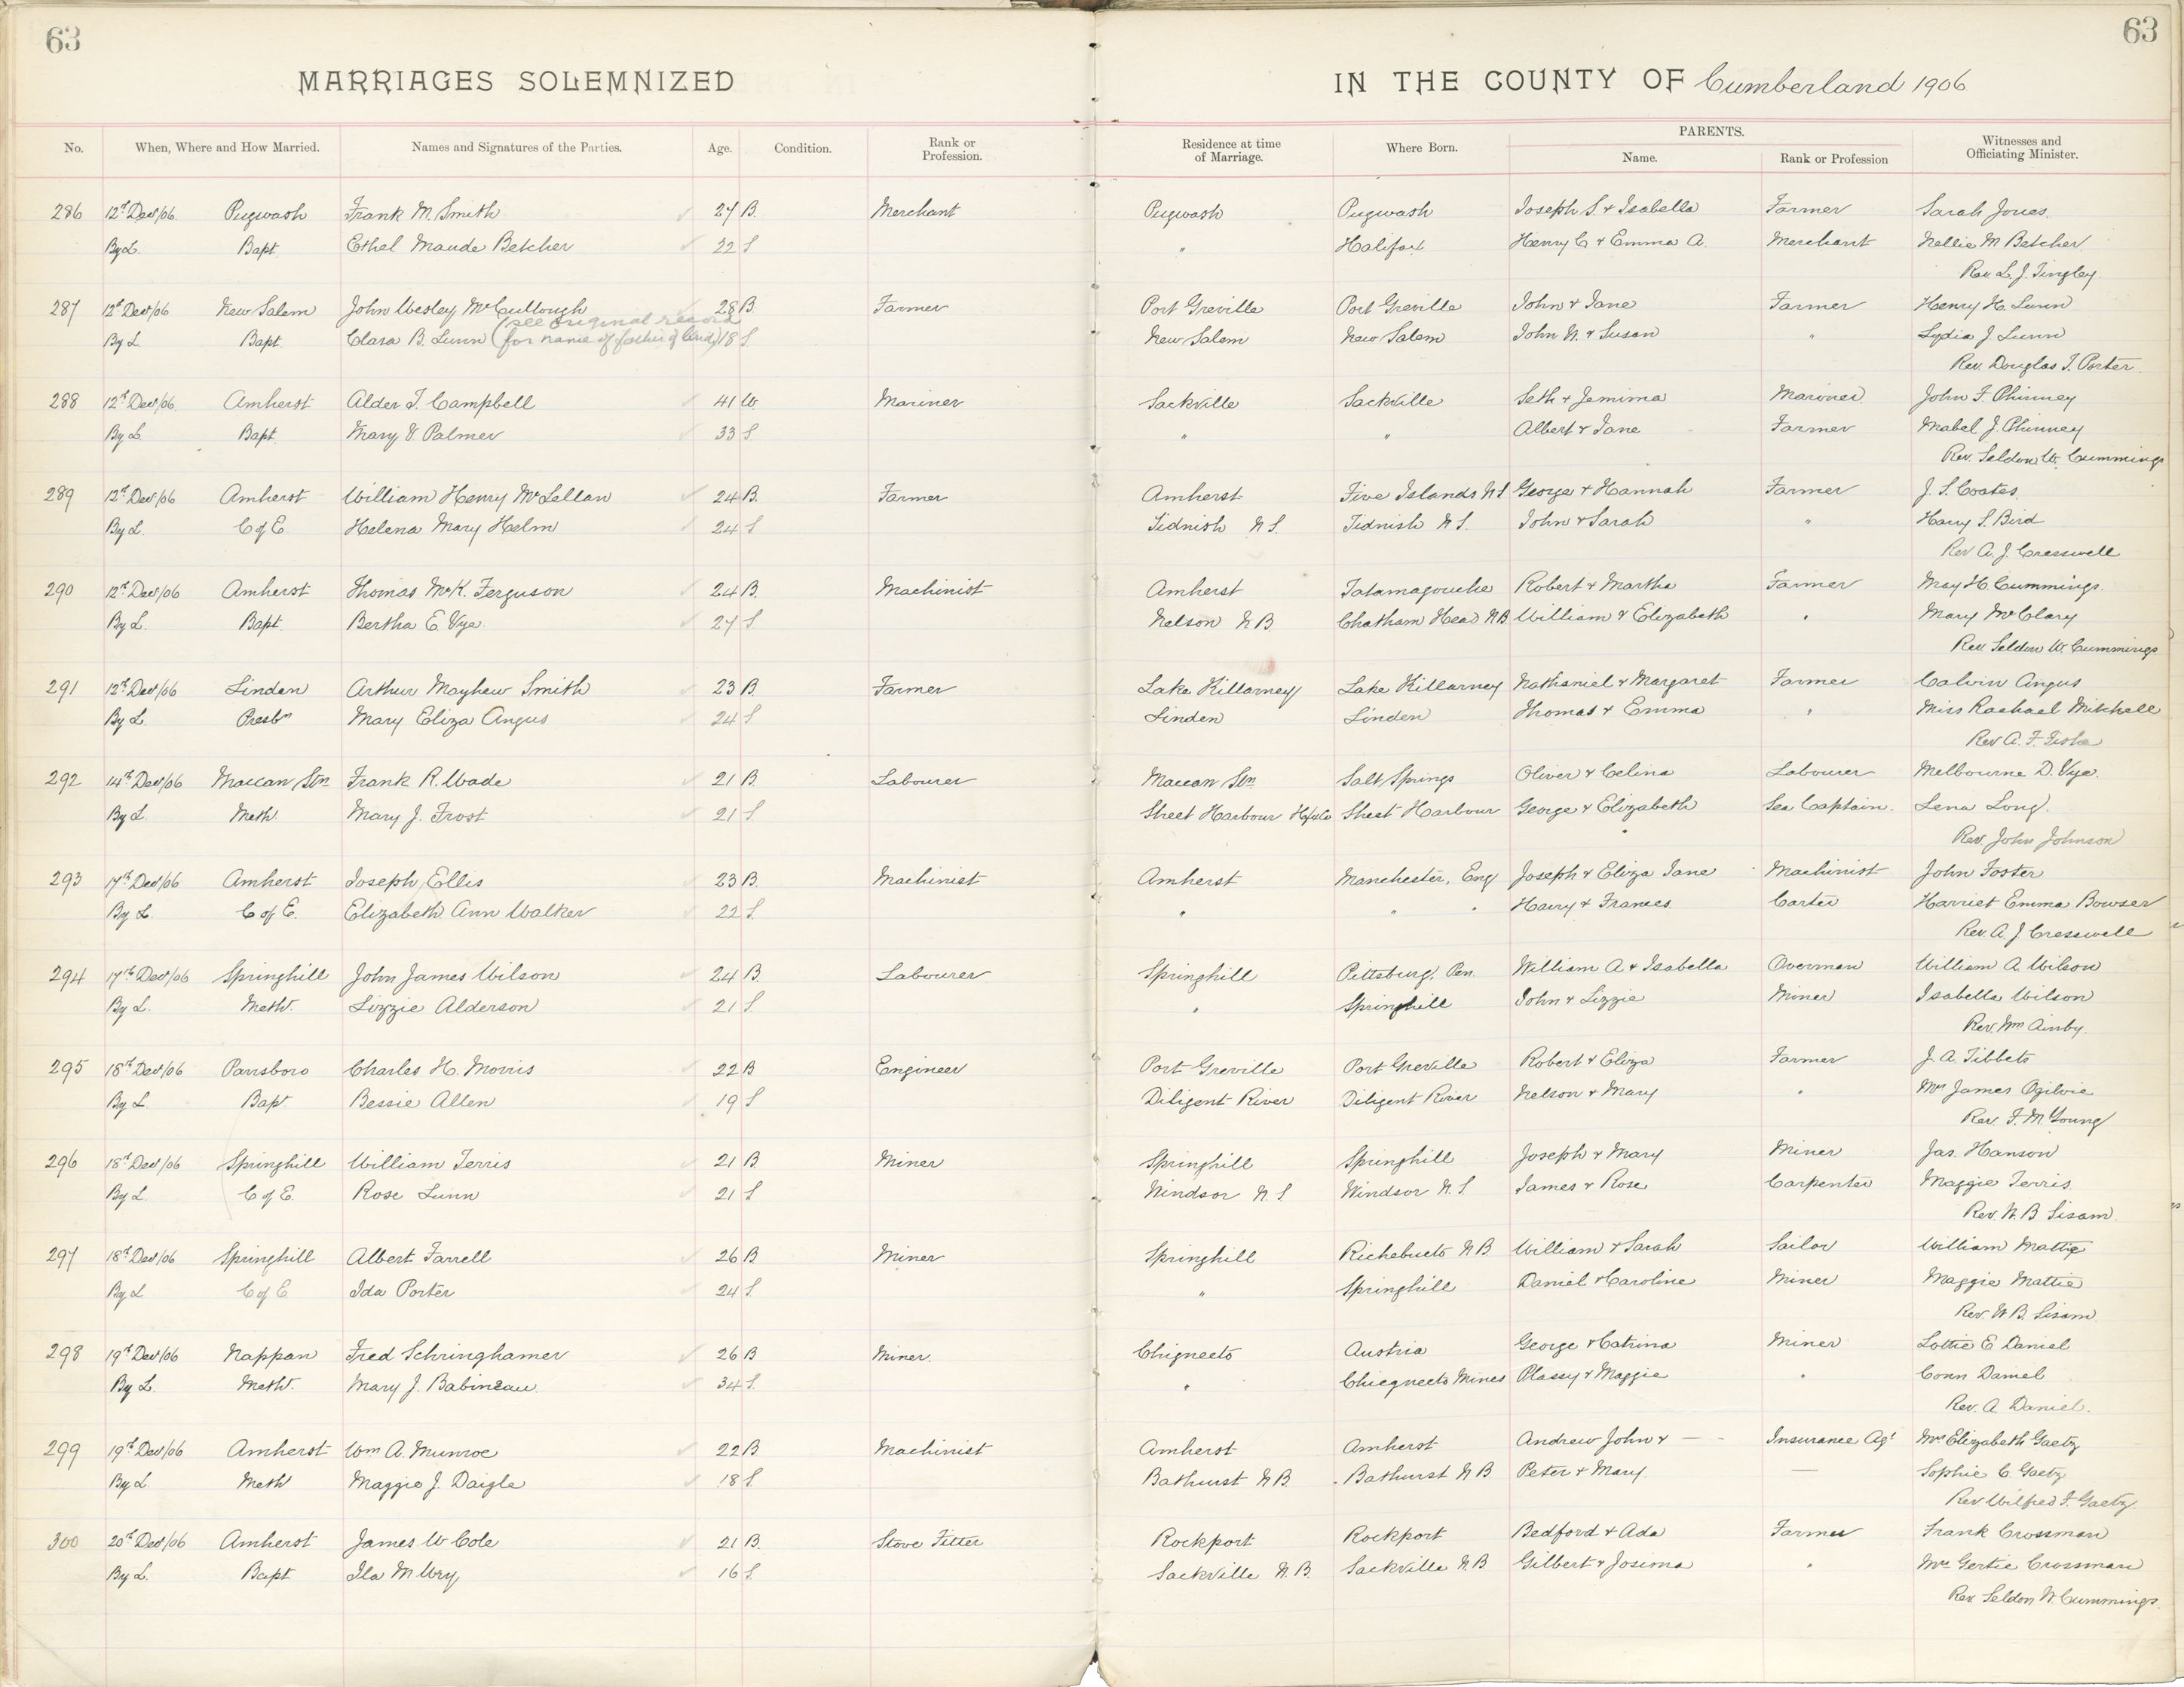 63
63
MARRIAGES SOLEMNIZED IN THE COUNTY OF Cumberland 1906
No. When, Where and How Married. Names and Signatures of the Parties. Age. Condition. Rank or Profession. Residence at time of Marriage. Where Born. PARENTS. Name. Rank or Profession Witnesses and Officiating Minister.
286 12th Dec/06 Pugwash Frank M. Smith 27 B. Merchant Pugwash Pugwash Joseph S. & Isabella Farmer Sarah Jones.
By L. Bapt. Ethel Maude Betcher 32 S " Halifax Henry C & Emma A. Merchant Nellie M Betcher
Rev L. J. Tingley.
287 12th Dec/06 New Salem John Wesley McCullough 28 B. Farmer Port Greville Port Greville John & Jane Farmer Henry H. Lunn
(see original record
By L Bapt. Clara B. Lunn for name of father of bride) 18 S. New Salem New Salem John N. & Susan " Lydia J Lunn
Rev. Douglas J. Porter.
288 12th Dec/06 Amherst Alder T. Campbell 41 W. Mariner Sackville Sackville Seth & Jemima Mariner John F. Phinney
By L. Bapt. Mary V. Palmer 33 S. " " Albert & Jane Farmer Mabel J. Phinney
Rev. Seldon W. Cummings
289 12th Dec/06 Amherst William Henry McLellan 24 B. Farmer Amherst Five Islands N.S George & Hannah Farmer J. S. Coates.
By L. C of E Helena Mary Helm 24 S Tidnish N S. Tidnish N S. John & Sarah " Harry S. Bird
Rev A. J. Cresswell
290 12th Dec/06 Amherst Thomas McK. Ferguson 24 B. Machinist Amherst Tatamagouche Robert & Martha Farmer May H. Cummings.
By L. Bapt. Bertha E. Vye. 27 S Nelson N B. Chatham Head N B. William & Elizabeth " Mary McClary
Rev. Seldon W. Cummings
291 12th Dec/06 Linden Arthur Mayhew Smith 23 B. Farmer Lake Killarney Lake Killarney Nathaniel & Margaret Farmer Calvin Angus
By L. Presbn Mary Eliza Angus 24 S Linden Linden Thomas & Emma " Miss Rachael Mitchell
Rev A. F.
292 14th Dec/06 Maccan Stn Frank R. Wade 21 B. Labourer Maccan Stn Salt Springs Oliver & Celina Labourer Melbourne D. Vye.
By L. Meth Mary J. Frost 21 S. Sheet Harbour Hfx Co Sheet Harbour George & Elizabeth Sea Captain. Lena Long.
Rev. John Johnson
293 17th Dec/06 Amherst Joseph Ellis 23 B. Machinist Amherst Manchester, Eng Joseph & Eliza Jane Machinist John Foster
By L. C of E. Elizabeth Ann Walker 22 S. " " " Harry & Frances Carter Harriet Emma Bowser
Rev. A. J Cresswell
294 17th Dec/06 Springhill John James Wilson 24 B. Labourer Springhill Pittsburg, Pen. William A & Isabella Overman William A Wilson
By L. Meth. Lizzie Alderson 21 S. " Springhill John & Lizzie Miner Isabella Wilson
Rev. Wm Ainby.
295 18th Dec/06 Parrsboro Charles H. Morris 22 B Engineer Port Greville Port Greville Robert & Eliza Farmer J. A. Tibbets
By L. Bap. Bessie Allen 19 S Diligent River Diligent River Nelson & Mary " Mrs James Ogilvie
Rev. F. M Young
296 18th Dec/06 Springhill William Terris 21 B. Miner Springhill Springhill Joseph & Mary Miner Jas. Hanson
By L C of E. Rose Lunn 21 S Windsor N. S Windsor N. S James & Rose Carpenter Maggie Terris
Rev. W. B Sisam
297 18th Dec/06 Springhill Albert Farrell 26 B Miner Springhill Richebucto N B. William & Sarah Sailor William Mattie
By L C of E Ida Porter 24 S. " Springhill Daniel & Caroline Miner Maggie Mattie
Rev. W. B. Sisam.
298 19th Dec/06 Nappan Fred Schringhamer 26 B Miner. Chignecto Austria George & Catrina Miner Lottie E Daniel
By L. Meth. Mary J. Babineau 34 S. " Chiegnecto Mines Plassy & Maggie " Conn Daniel
Rev. A Daniel.
299 19th Dec/06 Amherst Wm A. Munroe 22 B Machinist Amherst Amherst Andrew John & — Insurance Agt Mrs Elizabeth Gaetz
By L. Meth Maggie J. Daigle 18 S. Bathurst N B. Bathurst N B Peter & Mary. — Sophie C. Gaetz
Rev Wilfred F. Gaetz
300 20th Dec/06 Amherst James W Cole 21 B. Stove Fitter Rockport Rockport Bedford & Ada Farmer Frank Crossman
By L. Bapt Ila M Wry 16 S. Sackville N. B. Sackville N. B Gilbert & Josima " Mrs Gertie Crossman
Rev Seldon W. Cummings.